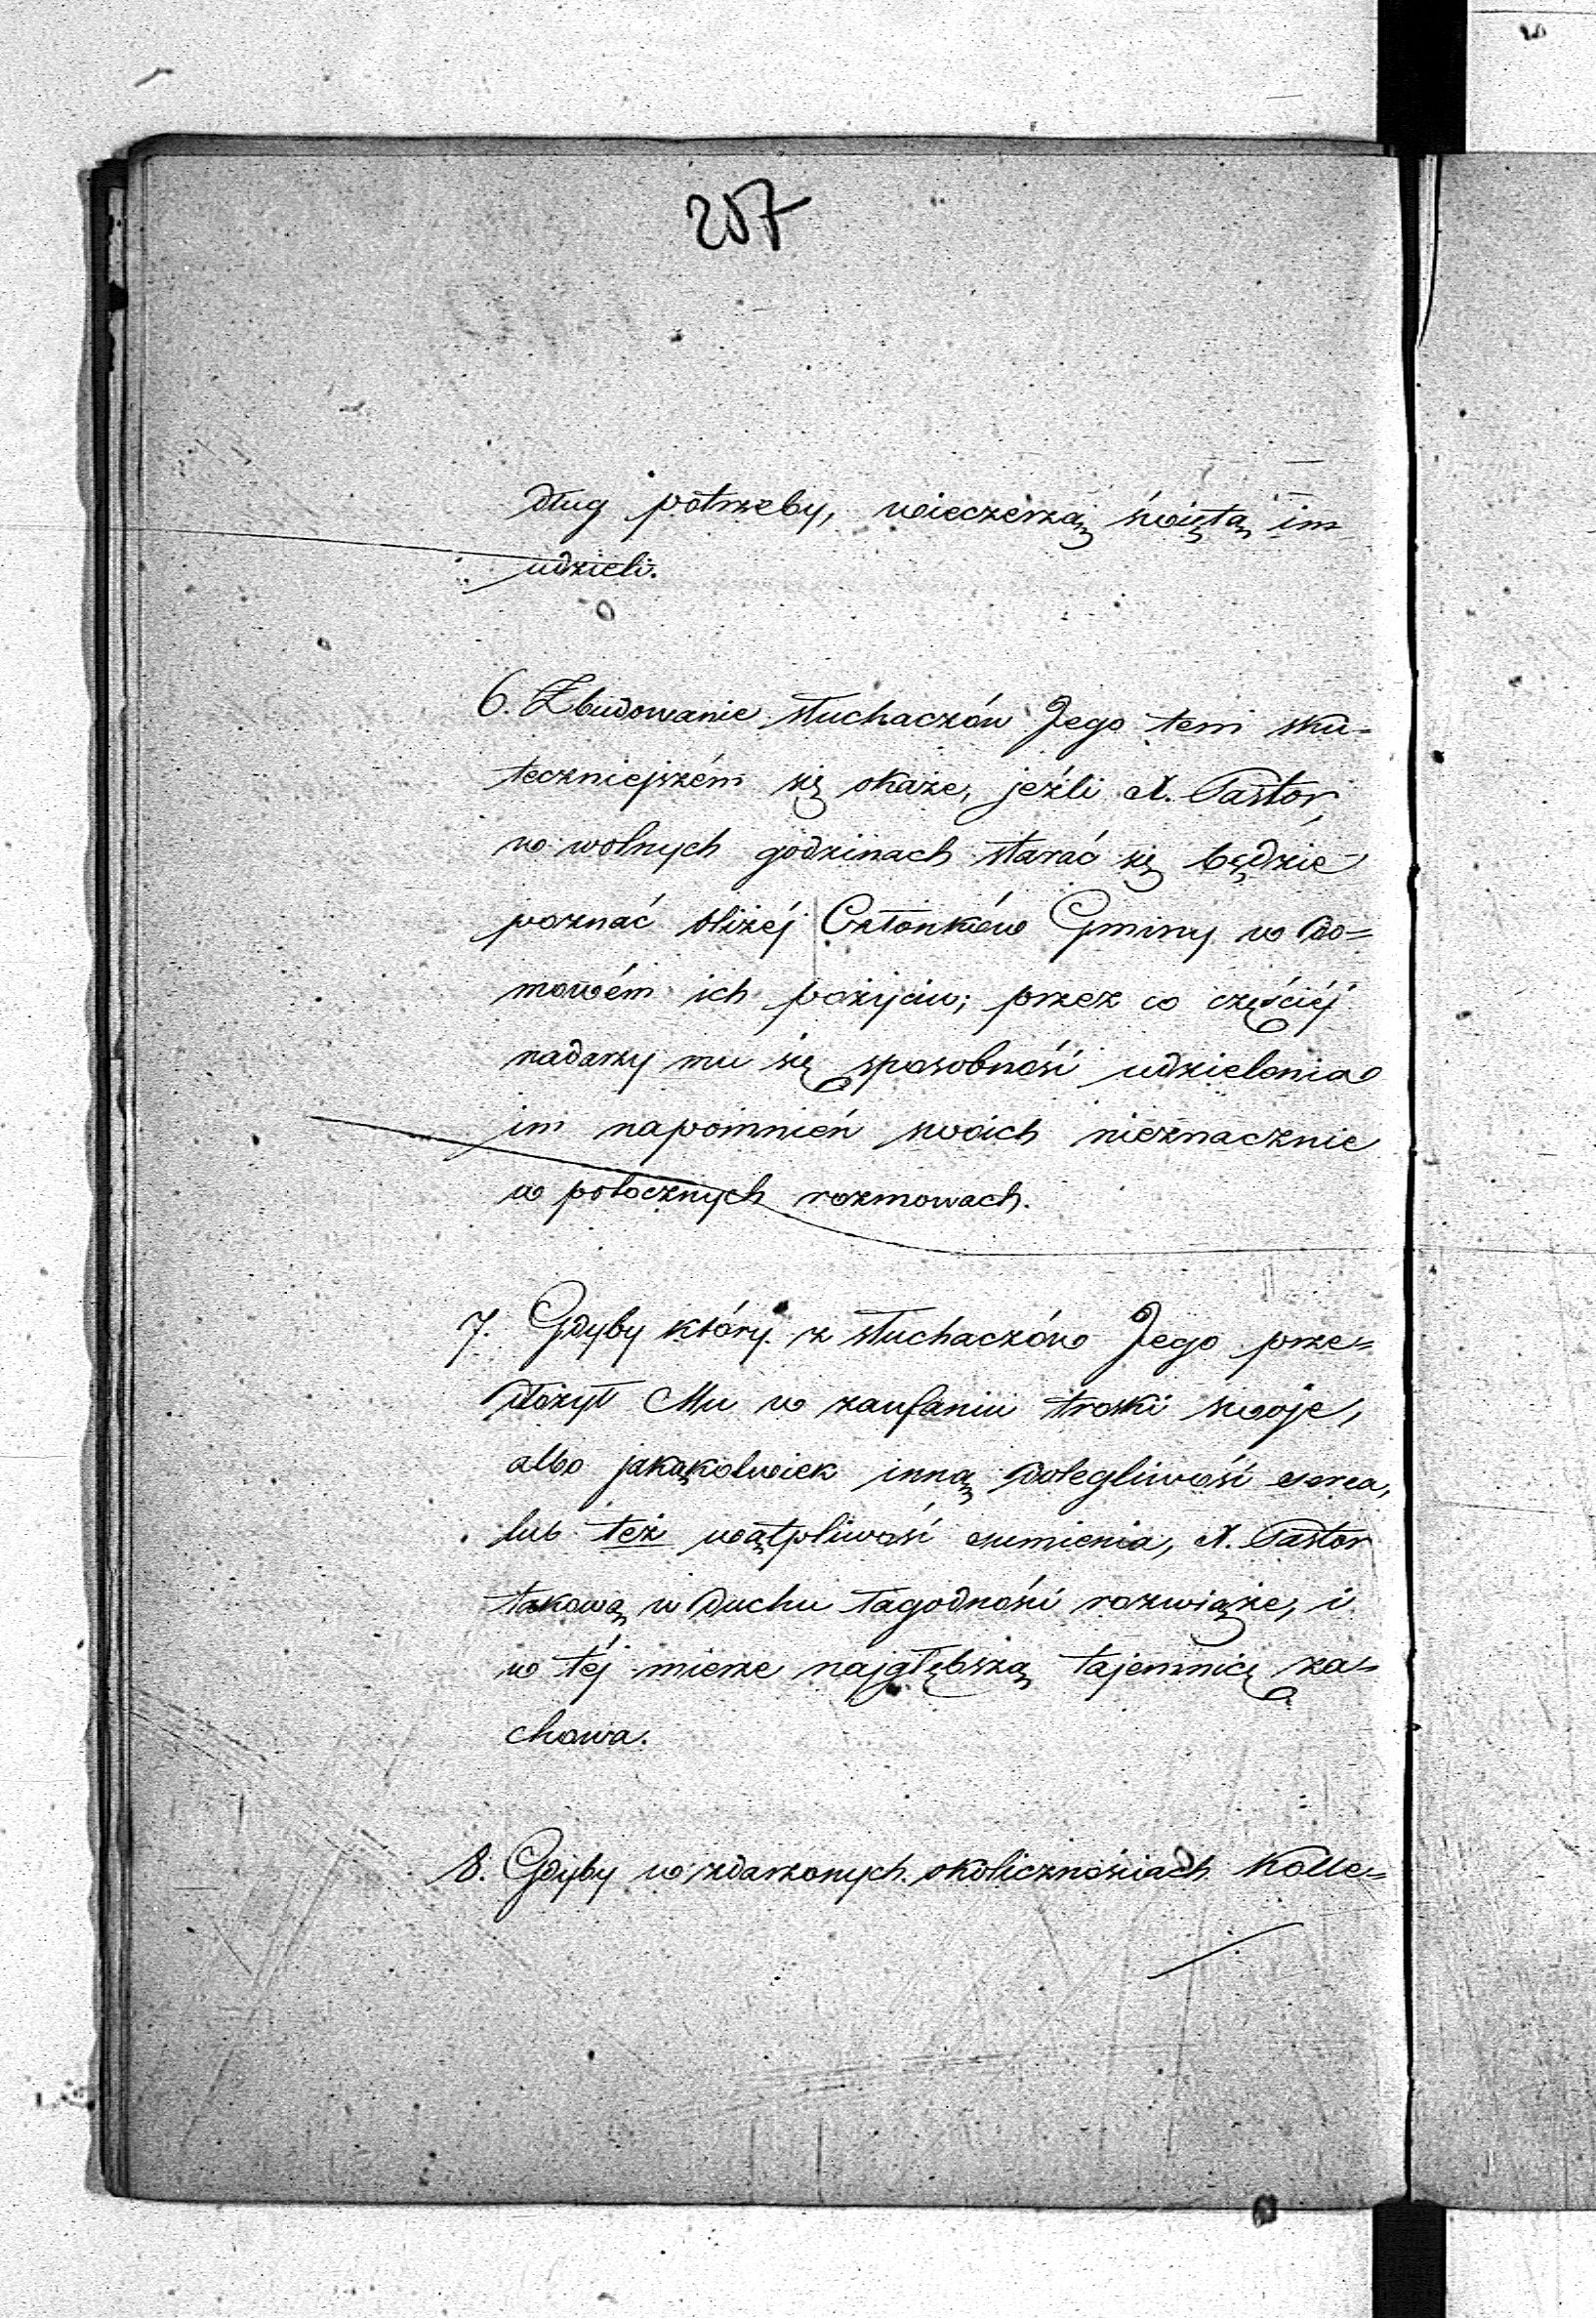 207
dług potrzeby, wieczerzą świętą im
udzieli.
6. Zbudowanie słuchaczów Jego tem sku=
teczniejszém się okaże, jeźli X. Pastor,
w wolnych godzinach starać się będzie
poznać bliżéj Członków Gminy w do=
mowém ich pożyciu; przez co częściéj
nadarzy mu się sposobność udzielenia
im napomnień swoich nieznacznie
w potocznych rozmowach.
7. Gdyby który z słuchaczów Jego prze=
dłożył Mu w zaufaniu troski swoje,
albo jakąkolwiek inną dolegliwość serca,
lub też wątpliwość sumienia, X. Pastor
takową w duchu łagodności rozwiąże, i
w téj mierze najgłębszą tajemnicę za=
chowa.
8. Gdyby w zdarzonych okolicznościach Kolle=